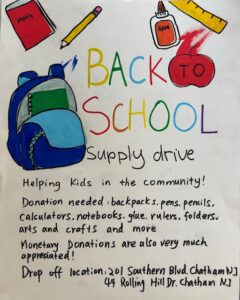 Math
Glue
BACK TO
SCHOOL
Supply drive
Helping Kids in the community!
Donation needed: backpacks, pens, pencils,
calculators, notebooks, glue, rulers, folders,
arts and crafts and more
Monetary Donations are also very much
appreciated!
Drop off location: 201 Southern Blvd. Chatham NJ
44 Rolling Hill Dr. Chatham NJ